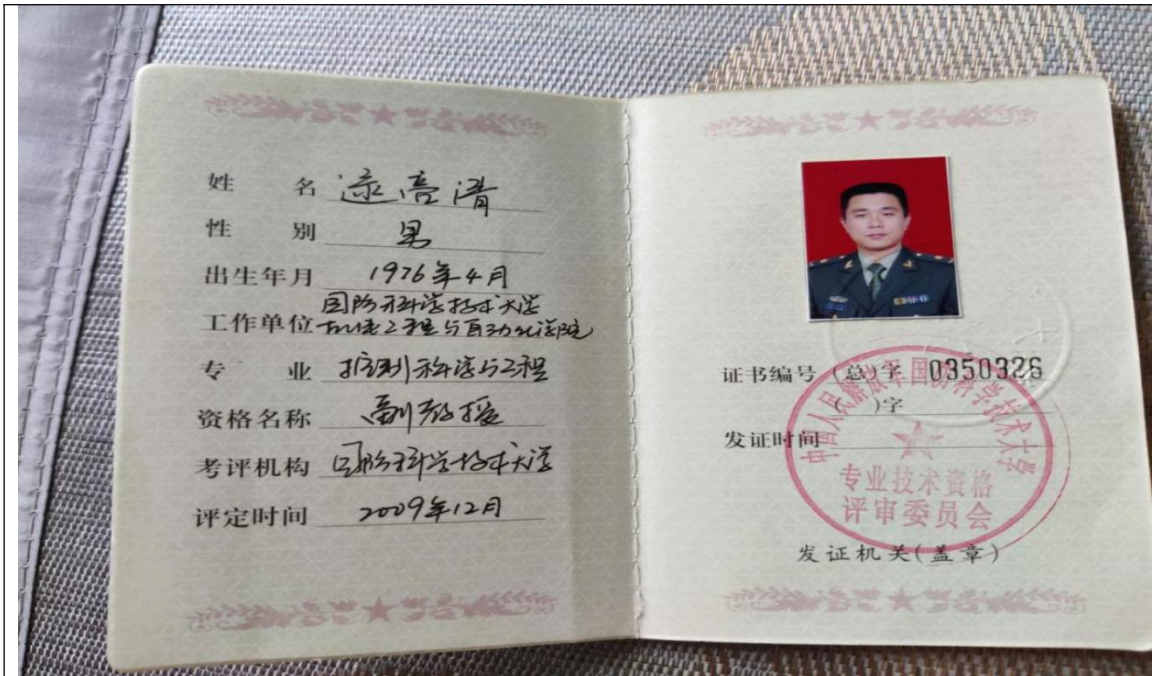 姓 名 逯亮清
性 别 男
出生年月 1976年4月
工作单位 国防科学技术大学
机电工程与自动化学院
专 业 控制科学与工程
资格名称 副教授
考评机构 国防科学技术大学
评定时间 2009年12月
证书编号 (总)字 0350326
( )字
发证时间
中国人民解放军国防科学技术大学
专业技术资格
评审委员会
发证机关(盖章)